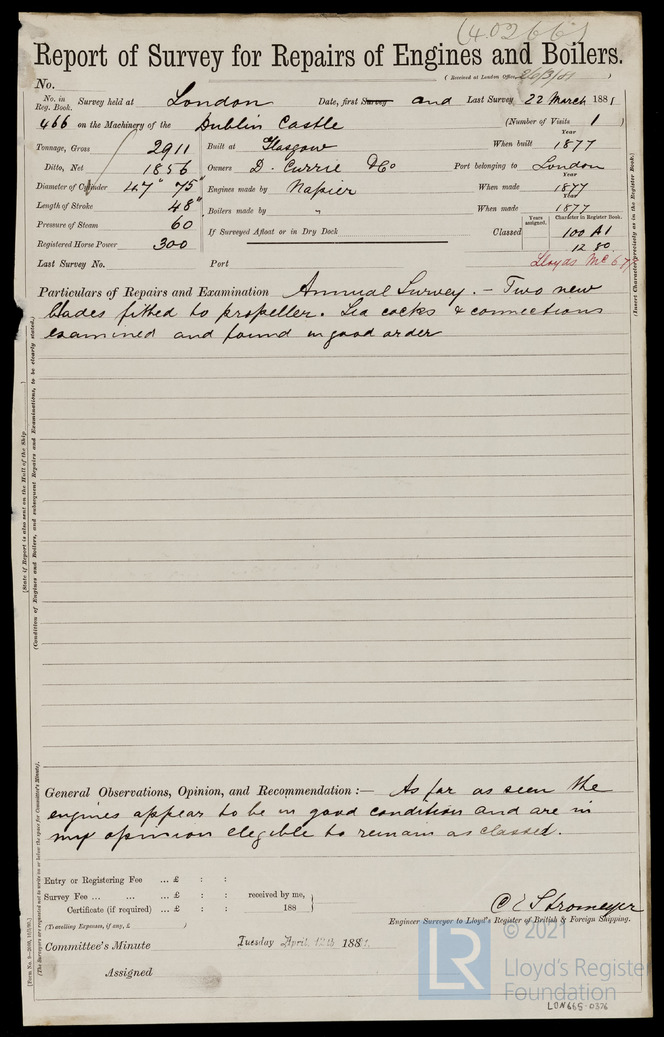 (40266)
Report of Survey for Repairs of Engines and Boilers.
(Received at London Office, 26/3/81)
No.
No. in Reg. Book. Survey held at London Date, first Survey and Last Survey 22 March 1881
466 on the Machinery of the Dublin Castle (Number of Visits 1)
Tonnage, Gross 2911 Built at Glasgow When built Year 1877
Ditto, Net 1856 Owners D. Currie & Co Port belonging to London
Diameter of Cylinder 47" 75" Engines made by Napier When made Year 1877
Length of Stroke 48" Boilers made by " When made Year 1877
Pressure of Steam 60 If Surveyed Afloat or in Dry Dock Classed Years assigned. Character in Register Book. 100 A1
Registered Horse Power 300 12 80
Last Survey No. Port Lloyds MC 6 77
(Insert Character precisely as in the Register Book.)
Particulars of Repairs and Examination Annual Survey. - Two new
blades fitted to propeller. Sea cocks & connections
examined and found in good order
(State if Report is also sent on the Hull of the Ship )
(Condition of Engines and Boilers, and subsequent Repairs and Examinations, to be clearly stated.)
General Observations, Opinion, and Recommendation :— As far as seen the
engines appear to be in good condition and are in
my opinion elegible to remain as classed.
(The Surveyors are requested not to write on or below the space for Committee's Minute).
Entry or Registering Fee ... £ : :
Survey Fee ... ... ... £ : : received by me,
Certificate (if required) ... £ : : 188
(Travelling Expenses, if any, £ )
C E Stromeyer
Engineer Surveyor to Lloyd's Register of British & Foreign Shipping.
Committee's Minute Tuesday April 12th 1881.
Assigned
LR © 2021
Lloyd's Register
Foundation
LON665-0376